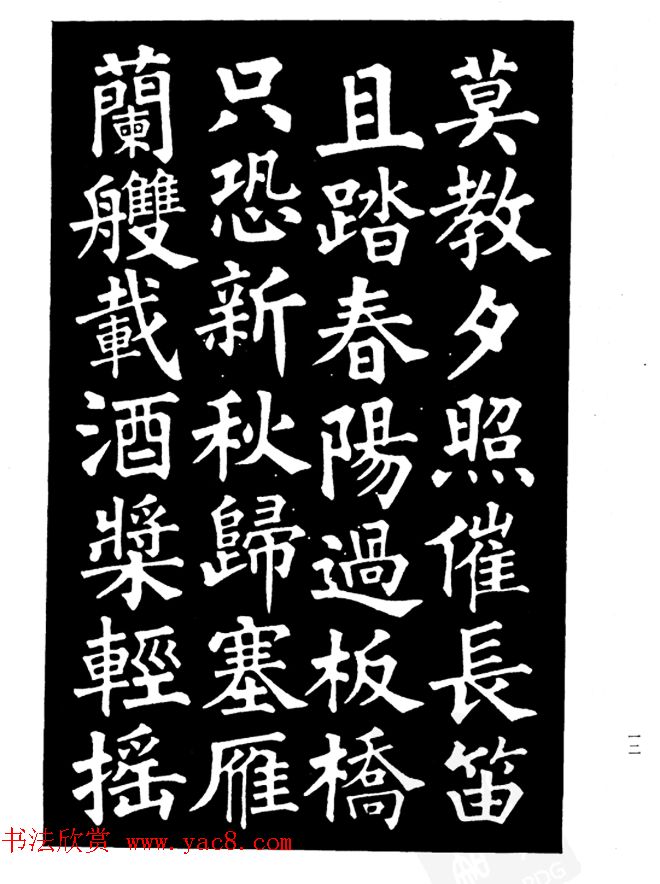 莫教夕照催長笛
且踏春陽過板橋
只恐新秋歸塞雁
蘭艭載酒槳輕摇
一二
书法欣赏 www.yac8.com